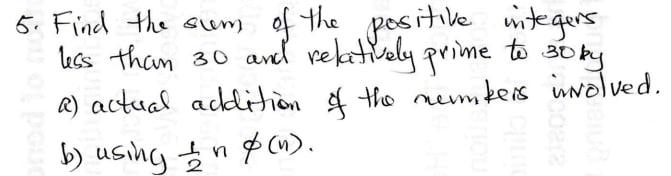 5. Find the sum of the positive integers
less than 30 and relatively prime to 30 by
a) actual addition of the numbers involved.
b) using ½ n φ(n).